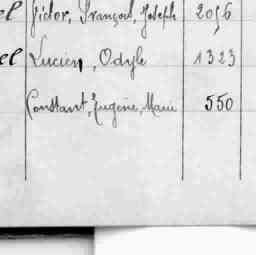 el Victor, François, Joseph 2056
el Lucien, Odyle 1323
Constant, Eugène, Marie 550